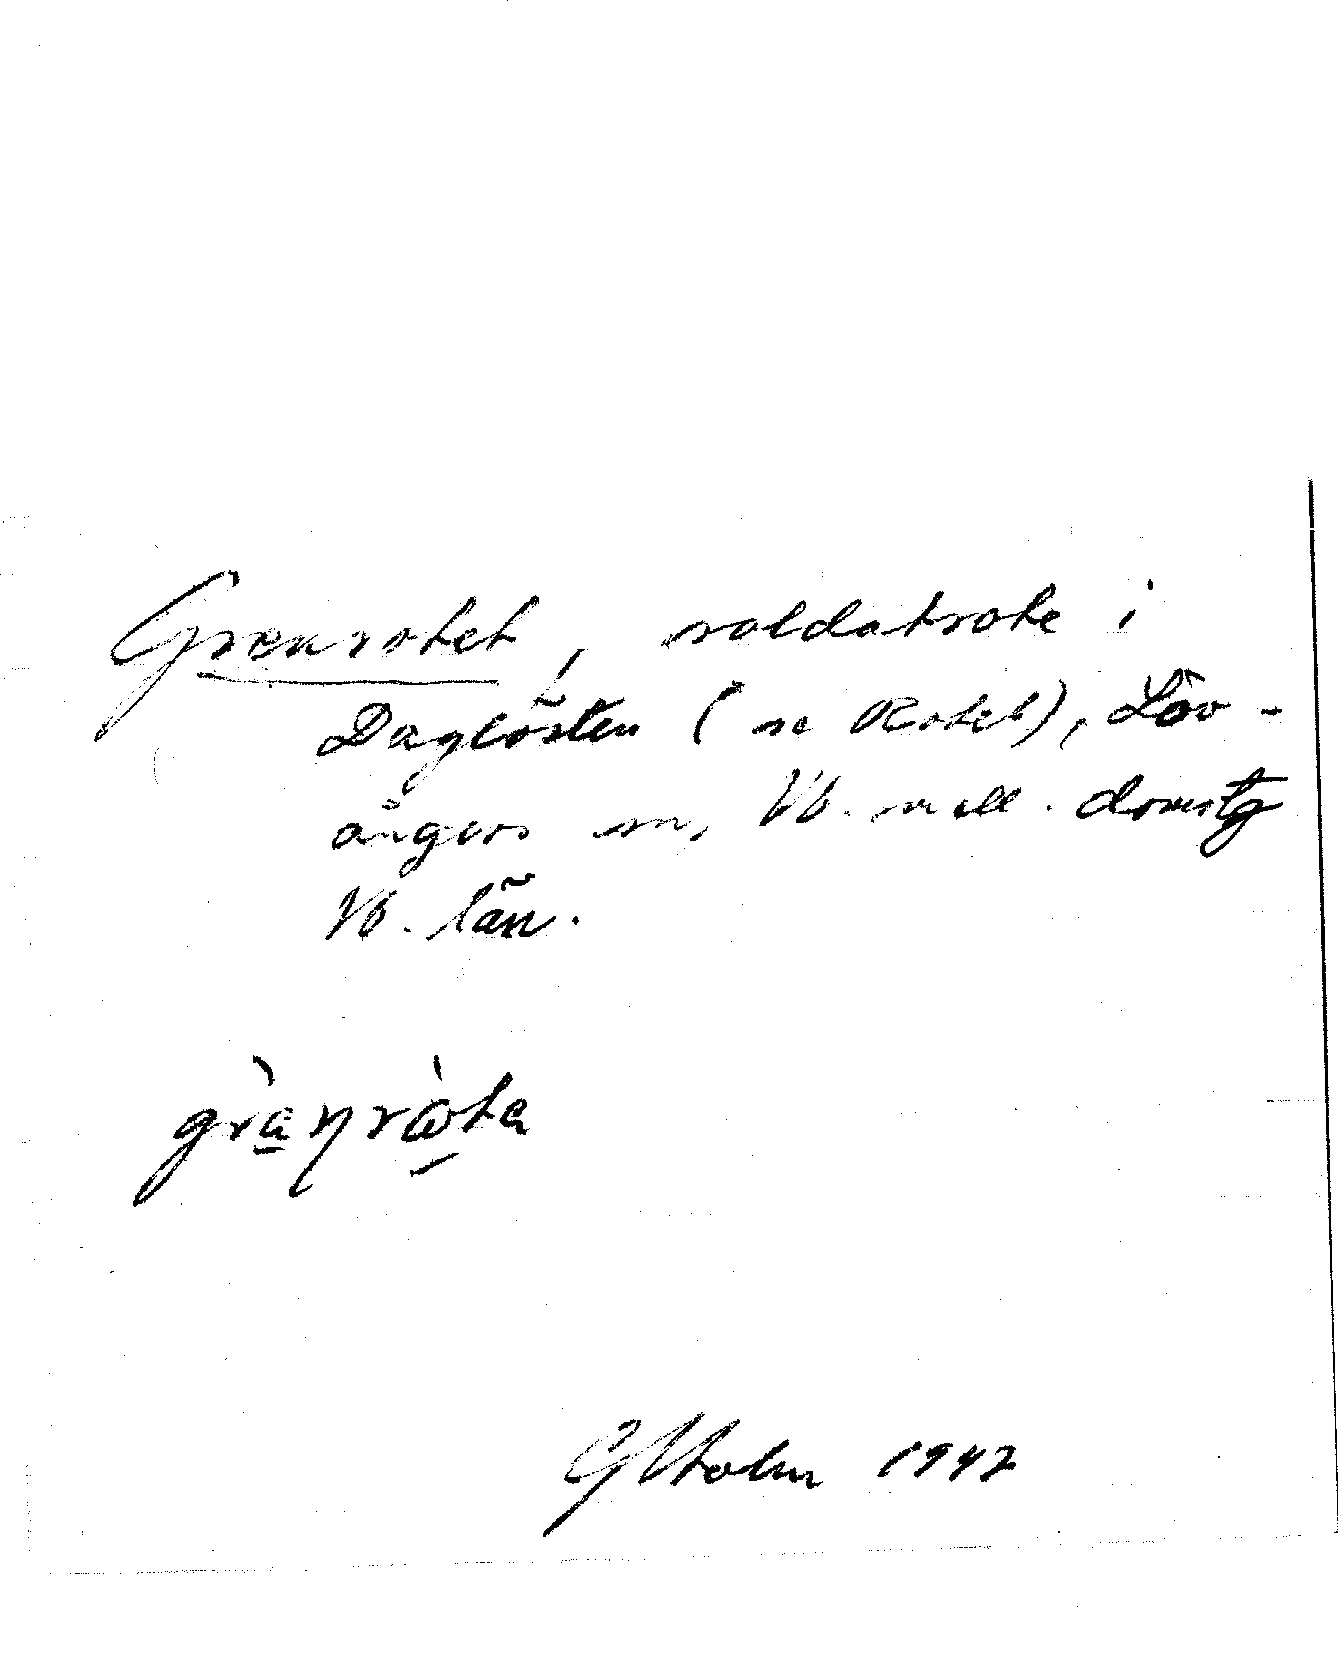 Grenrotet, soldatrote i
Daglösten (se Rotet), Löv-
ångers sn, Vb. mell. domstg
Vb. län.
grànròta
1947